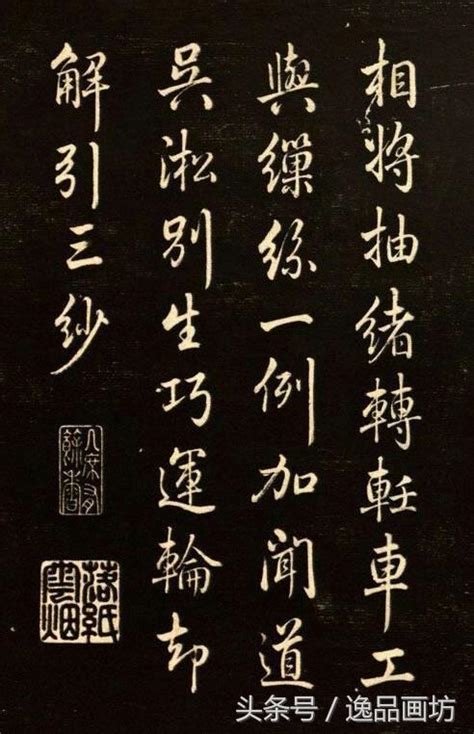 相將抽緒轉軠車工
與繅絲一例加聞道
吳淞別生巧運輪却
解引三紗
落紙
雲烟
头条号 / 逸品画坊